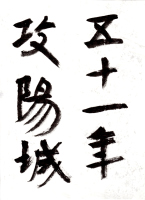 五十一年
攻陽城